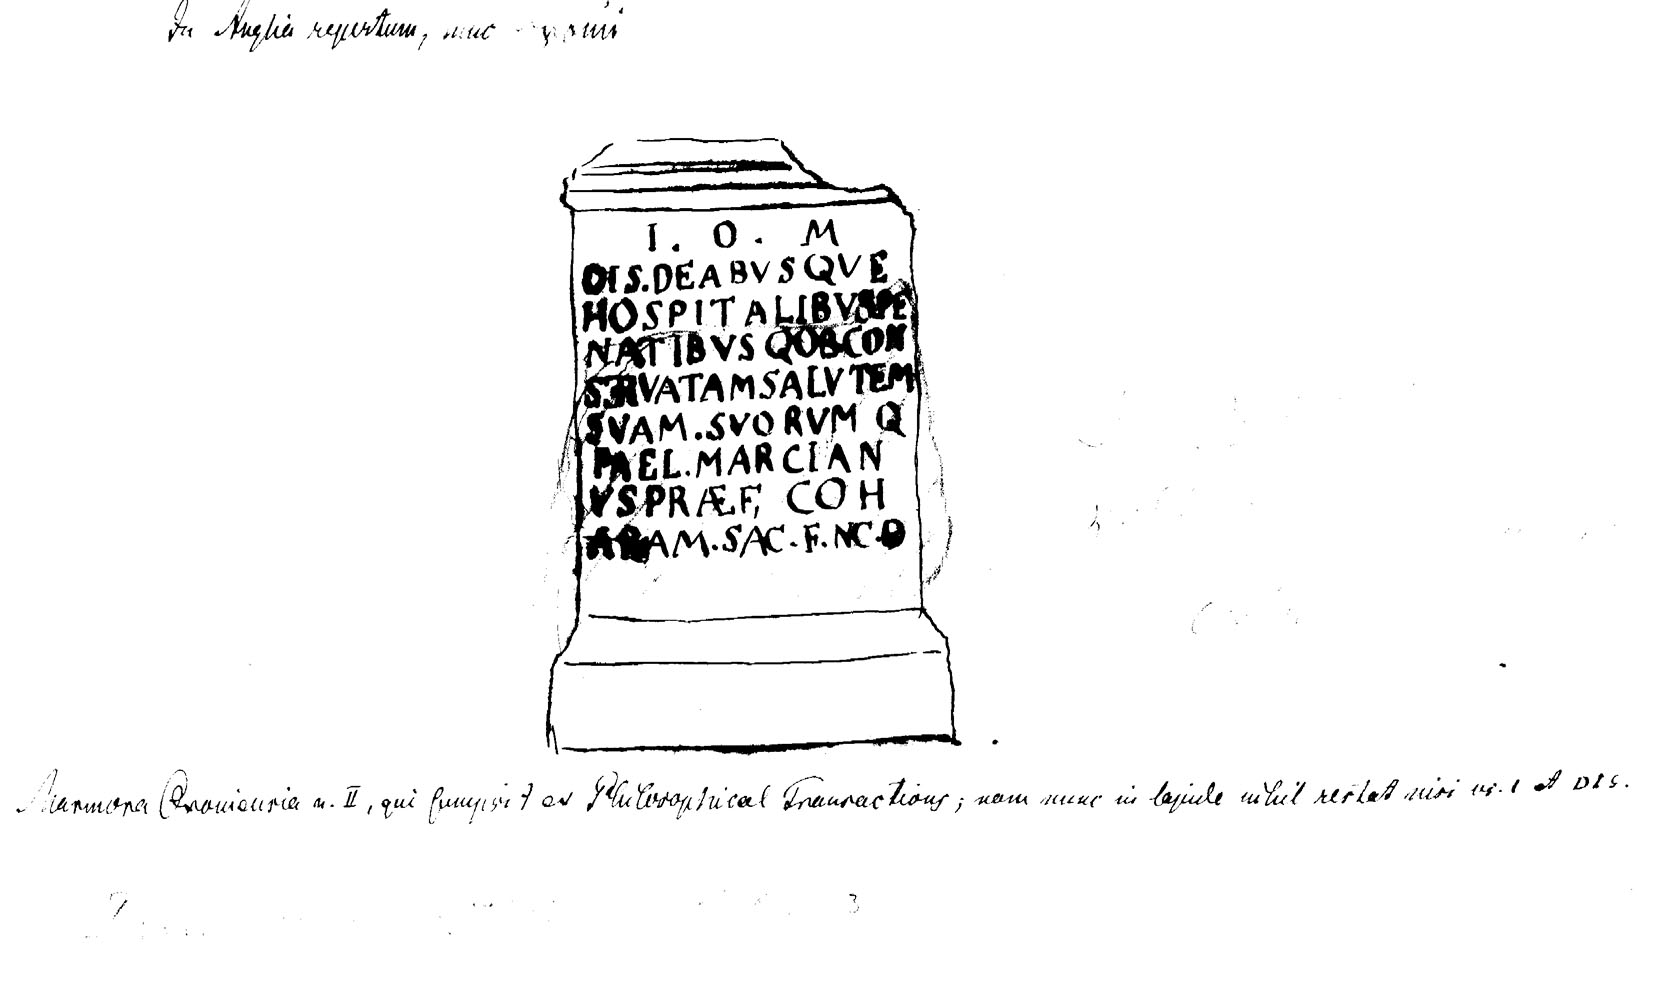 In Anglia repertum, nunc
I. O. M
DIS.DEABVSQVE
HOSPITALIBVSPE
NATIBVSQOBCON
SERVATAMSALVTEM
SVAM.SVORVMQ
PAEL.MARCIAN
VSPRÆF, COH
ARAM.SAC.F.NC.D
Marmora Oxoniensia n. II, qui sumpsit ex Philosophical Transactions; nam nunc in lapide nihil restat nisi vs. 1 et DIS.